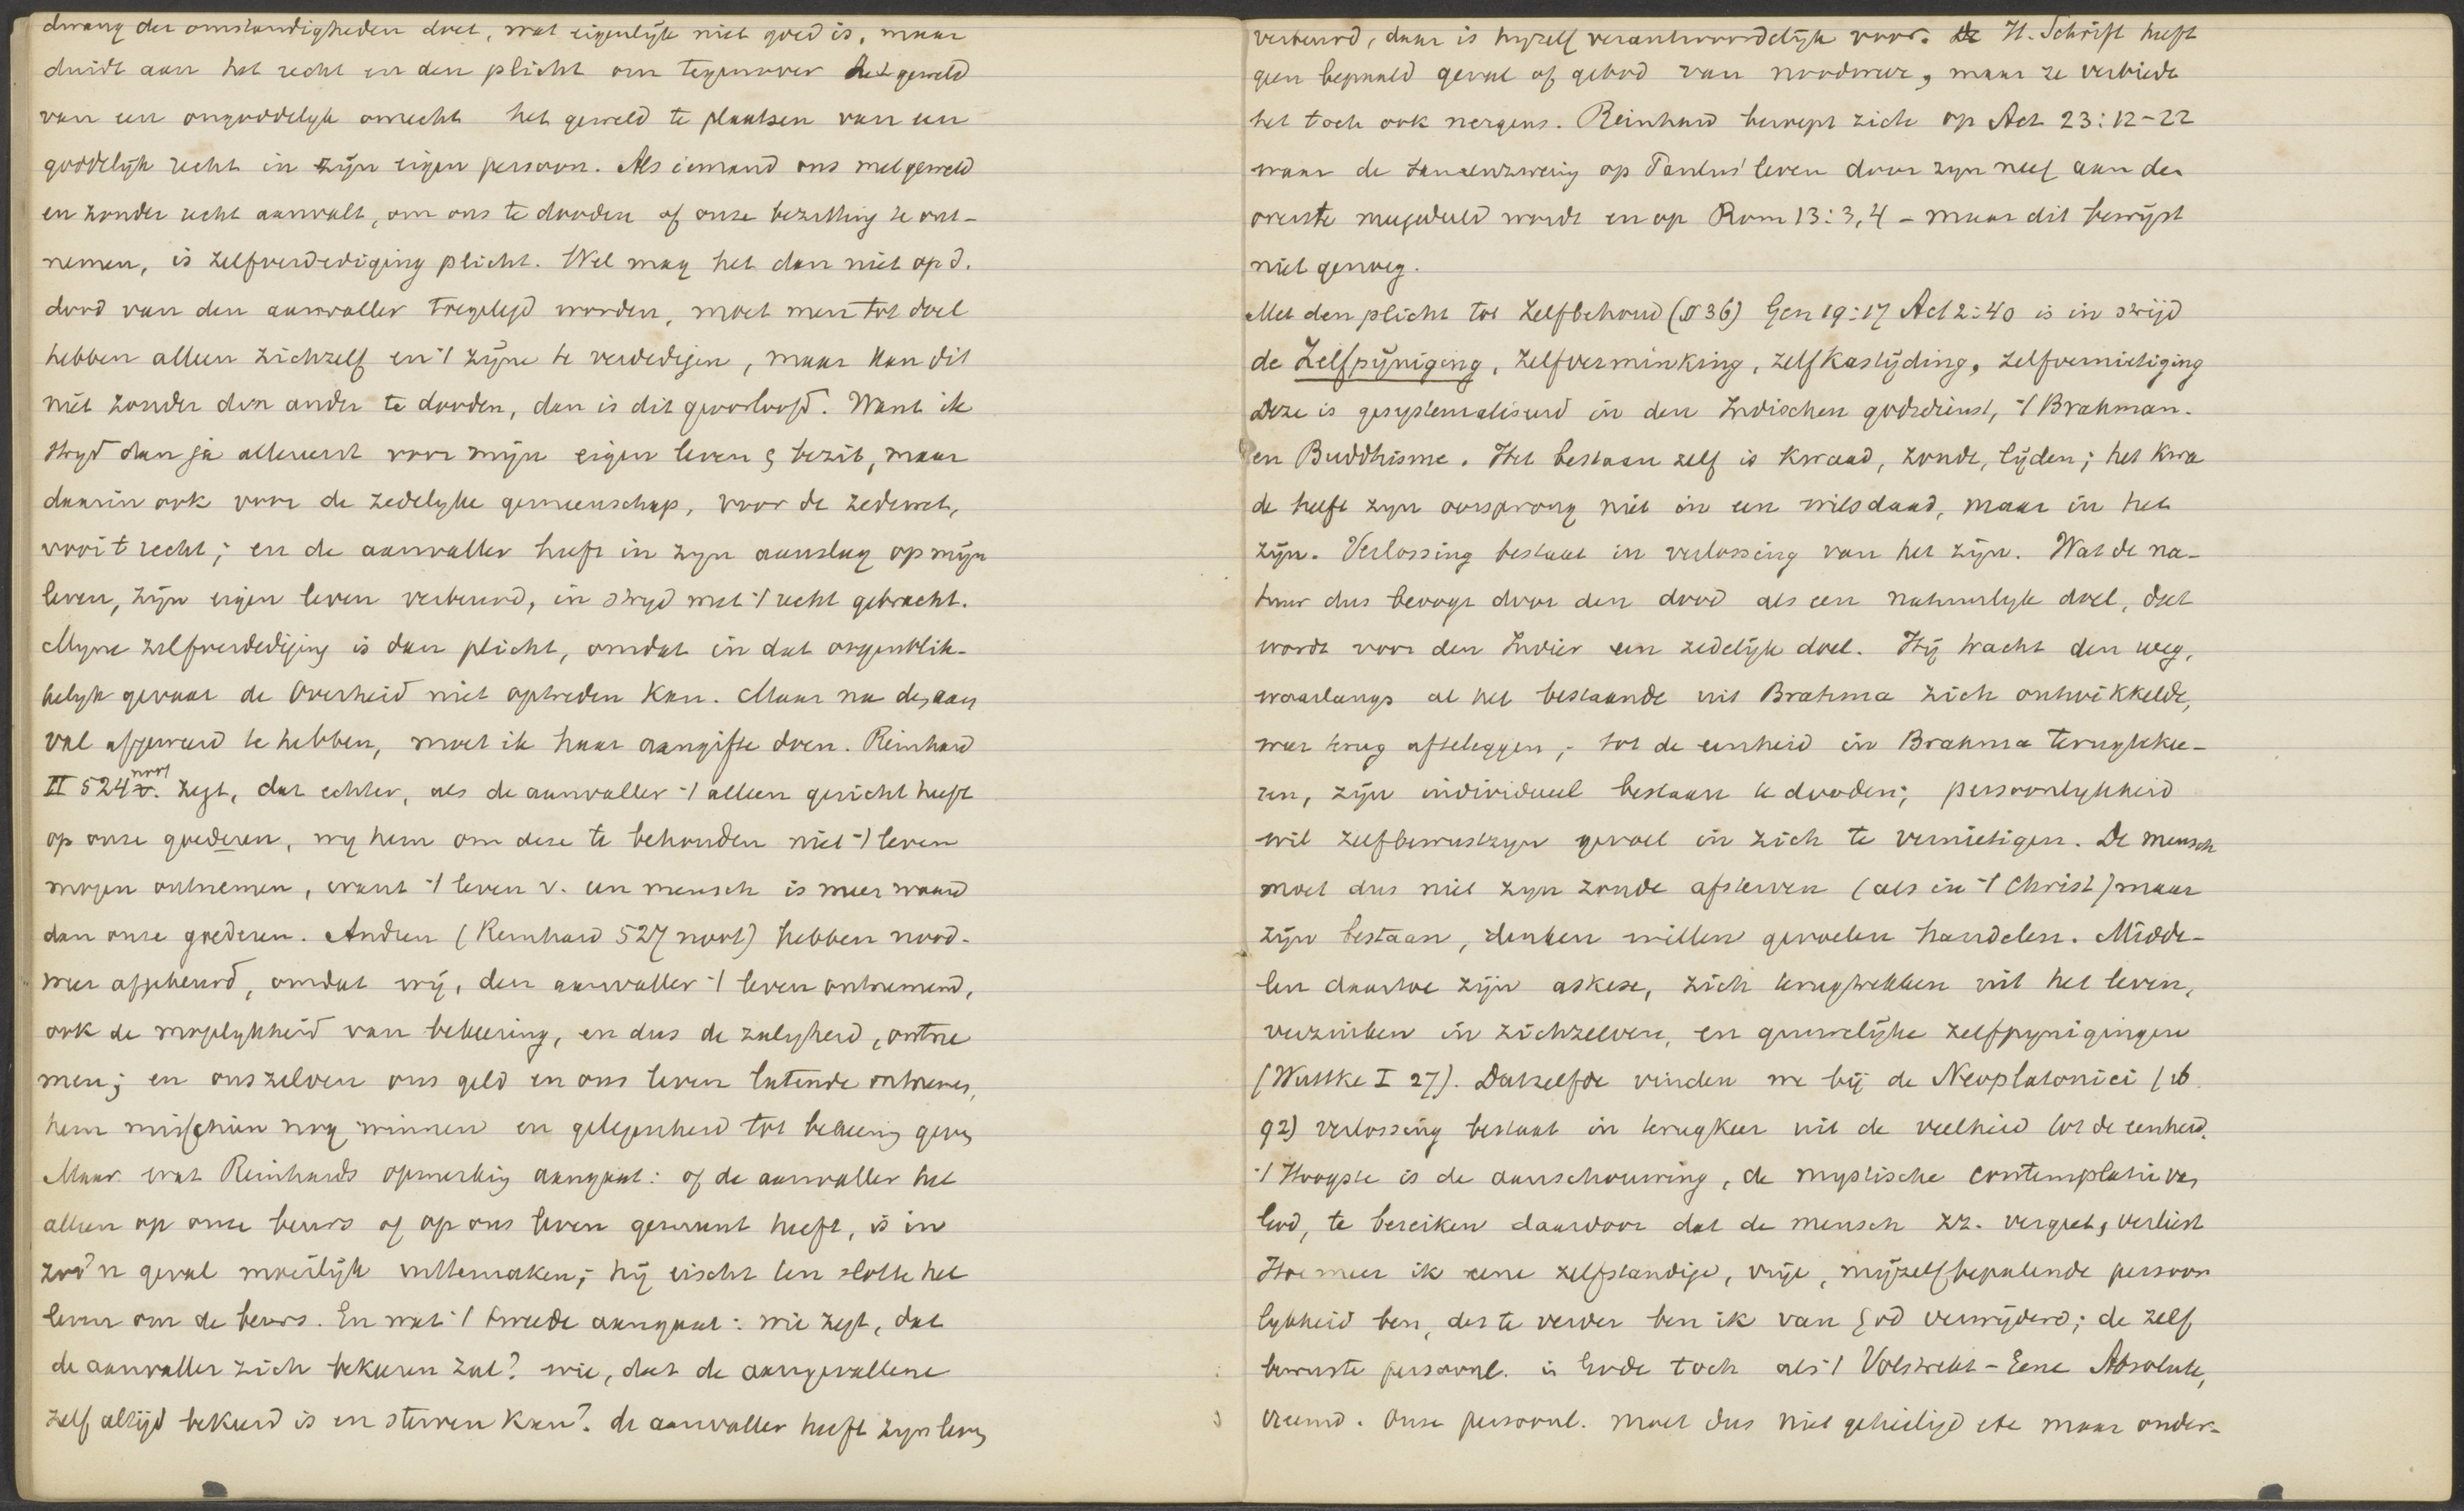 dwang der omstandigheden doet, wat eigenlijk niet goed is, maar
duidt aan het recht en den plicht om tegenover het geweld
van een ongoddelijk onrecht het geweld te plaatsen van een
goddelijk recht in zijn eigen persoon. Als iemand ons met geweld
en zonder recht aanvalt, om ons te dooden of onze bezitting te ont-
nemen, is zelfverdediging plicht. Wel mag het dan niet op d.
dood van den aanvaller toegelegd worden, moet men tot doel
hebben alleen zichzelf en 't zijne te verdedigen, maar kan dit
niet zonder den ander te dooden, dan is dit geoorloofd. Want ik
stryd dan ja allereerst voor mijn eigen leven & bezit, maar
daarin ook voor de zedelyke gemeenschap, voor de zedewet,
voor 't recht; en de aanvaller heeft in zyn aanslag op mijn
leven, zijn eigen leven verbeurd, in stryd met 't recht gebracht.
Myne zelfverdediging is dan plicht, omdat in dat oogenblik-
kelyk gevaar de Overheid niet optreden kan. Maar na den aan
val afgeweerd te hebben, moet ik haar aangifte doen. Reinhard
II 524 noot v. zegt, dat echter, als de aanvaller 't alleen gericht heeft
op onze goederen, wy hem om deze te behouden niet 't leven
mogen ontnemen, want 't leven v. een mensch is meer waard
dan onze goederen. Andren (Reinhard 527 noot) hebben nood-
weer afgekeurd, omdat wij, den aanvaller 't leven ontnemend,
ook de mogelykheid van bekeering, en dus de zaligheid, ontne
men; en onszelven ons geld en ons leven latende ontnemen,
hem misschien nog winnen en gelegenheid tot bekeering geven
Maar wat Reinhards opmerking aangaat: of de aanvaller het
alleen op onze beurs of op ons leven gemunt heeft, is in
zoo'n geval moeilijk uittemaken; hij eischt ten slotte het
leven om de beurs. En wat 't tweede aangaat: wie zegt, dat
de aanvaller zich bekeeren zal? wie, dat de aangevallene
zelf altijd bekeerd is en sterven kan? de aanvaller heeft zyn leven
verbeurd, daar is hyzelf verantwoordelijk voor. De H. Schrift heeft
geen bepaald geval of gebod van noodweer, maar ze verbiedt
het toch ook nergens. Reinhard beroept zich op Act 23:12-22
waar de samenzwering op Paulus' leven door zyn neef aan den
overste meegedeeld wordt en op Rom 13:3,4 - maar dit bewijst
niet genoeg.
Met den plicht tot zelfbehoud (§ 36) Gen 19:17 Act 2:40 is in strijd
de Zelfpijniging, zelfverminking, zelfkastijding, zelfvernietiging
Deze is gesystematiseerd in den Indischen godsdienst, 't Brahman-
en Buddhisme. Het bestaan zelf is kwaad, zonde, lijden; het kwa
de heeft zyn oorsprong niet in een wilsdaad, maar in het
zijn. Verlossing bestaat in verlossing van het zijn. Wat de na-
tuur dus beoogt door den dood als een natuurlijk doel, dat
wordt voor den Indier een zedelijk doel. Hij tracht den weg,
waarlangs al het bestaande uit Brahma zich ontwikkelde,
weer terug afteleggen, tot de eenheid in Brahma terugtekee-
ren, zijn individueel bestaan te dooden; persoonlykheid
wil zelfbewustzyn gevoel in zich te vernietigen. De mensch
moet dus niet zyn zonde afsterven (als in 't Christ) maar
zijn bestaan, denken willen gevoelen handelen. Midde-
len daartoe zijn askese, zich terugtrekken uit het leven,
verzinken in zichzelven, en gruwelijke zelfpynigingen
(Wuttke I 27). Datzelfde vinden we bij de Neoplatonici (ib
92) verlossing bestaat in terugkeer uit de veelheid tot de eenheid.
't Hoogste is de aanschouwing, de mystische contemplatie van
God, te bereiken daardoor dat de mensch zz. vergeet, verliest
Hoe meer ik eene zelfstandige, vrije, mijzelfbepalende persoon
lykheid ben, des te verder ben ik van God verwijderd; de zelf
bewuste persoonl. is Gode toch als 't Volstrekt-Eene Absolute,
vreemd. Onze persoonl. moet dus niet geheiligd etc maar onder-